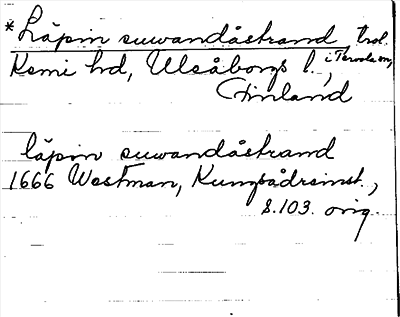 *Läpin suwandåstrand trol.
Kemi hrd, Uleåborgs l., i Tervola sn,
Finland
läpin suwandåstrand
1666 Westman, Kungsådreinst.,
s.103. orig.